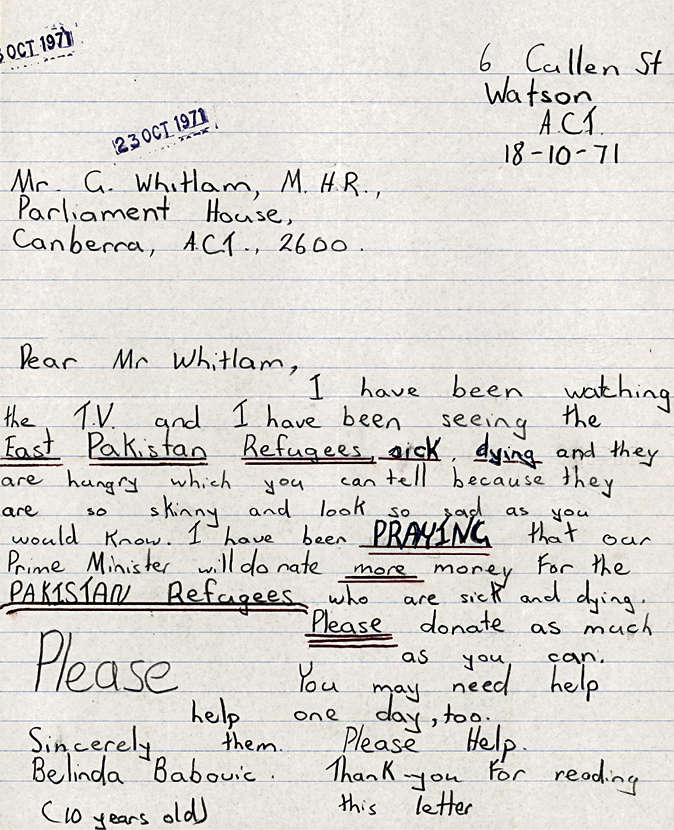 OCT 1971
23 OCT 1971
6 Cullen St
Watson
A.C.T.
18-10-71
Mr. G. Whitlam, M.H.R.,
Parliament House,
Canberra, A.C.T., 2600.
Dear Mr Whitlam,
I have been watching
the T.V. and I have been seeing the
East Pakistan Refugees, sick, dying and they
are hungry which you can tell because they
are so skinny and look so sad as you
would know. I have been PRAYING that our
Prime Minister will donate more money for the
PAKISTAN Refugees who are sick and dying.
Please donate as much
as you can.
Please You may need help
help one day, too.
Sincerely them. Please Help.
Belinda Babovic. Thank-you for reading
(10 years old) this letter